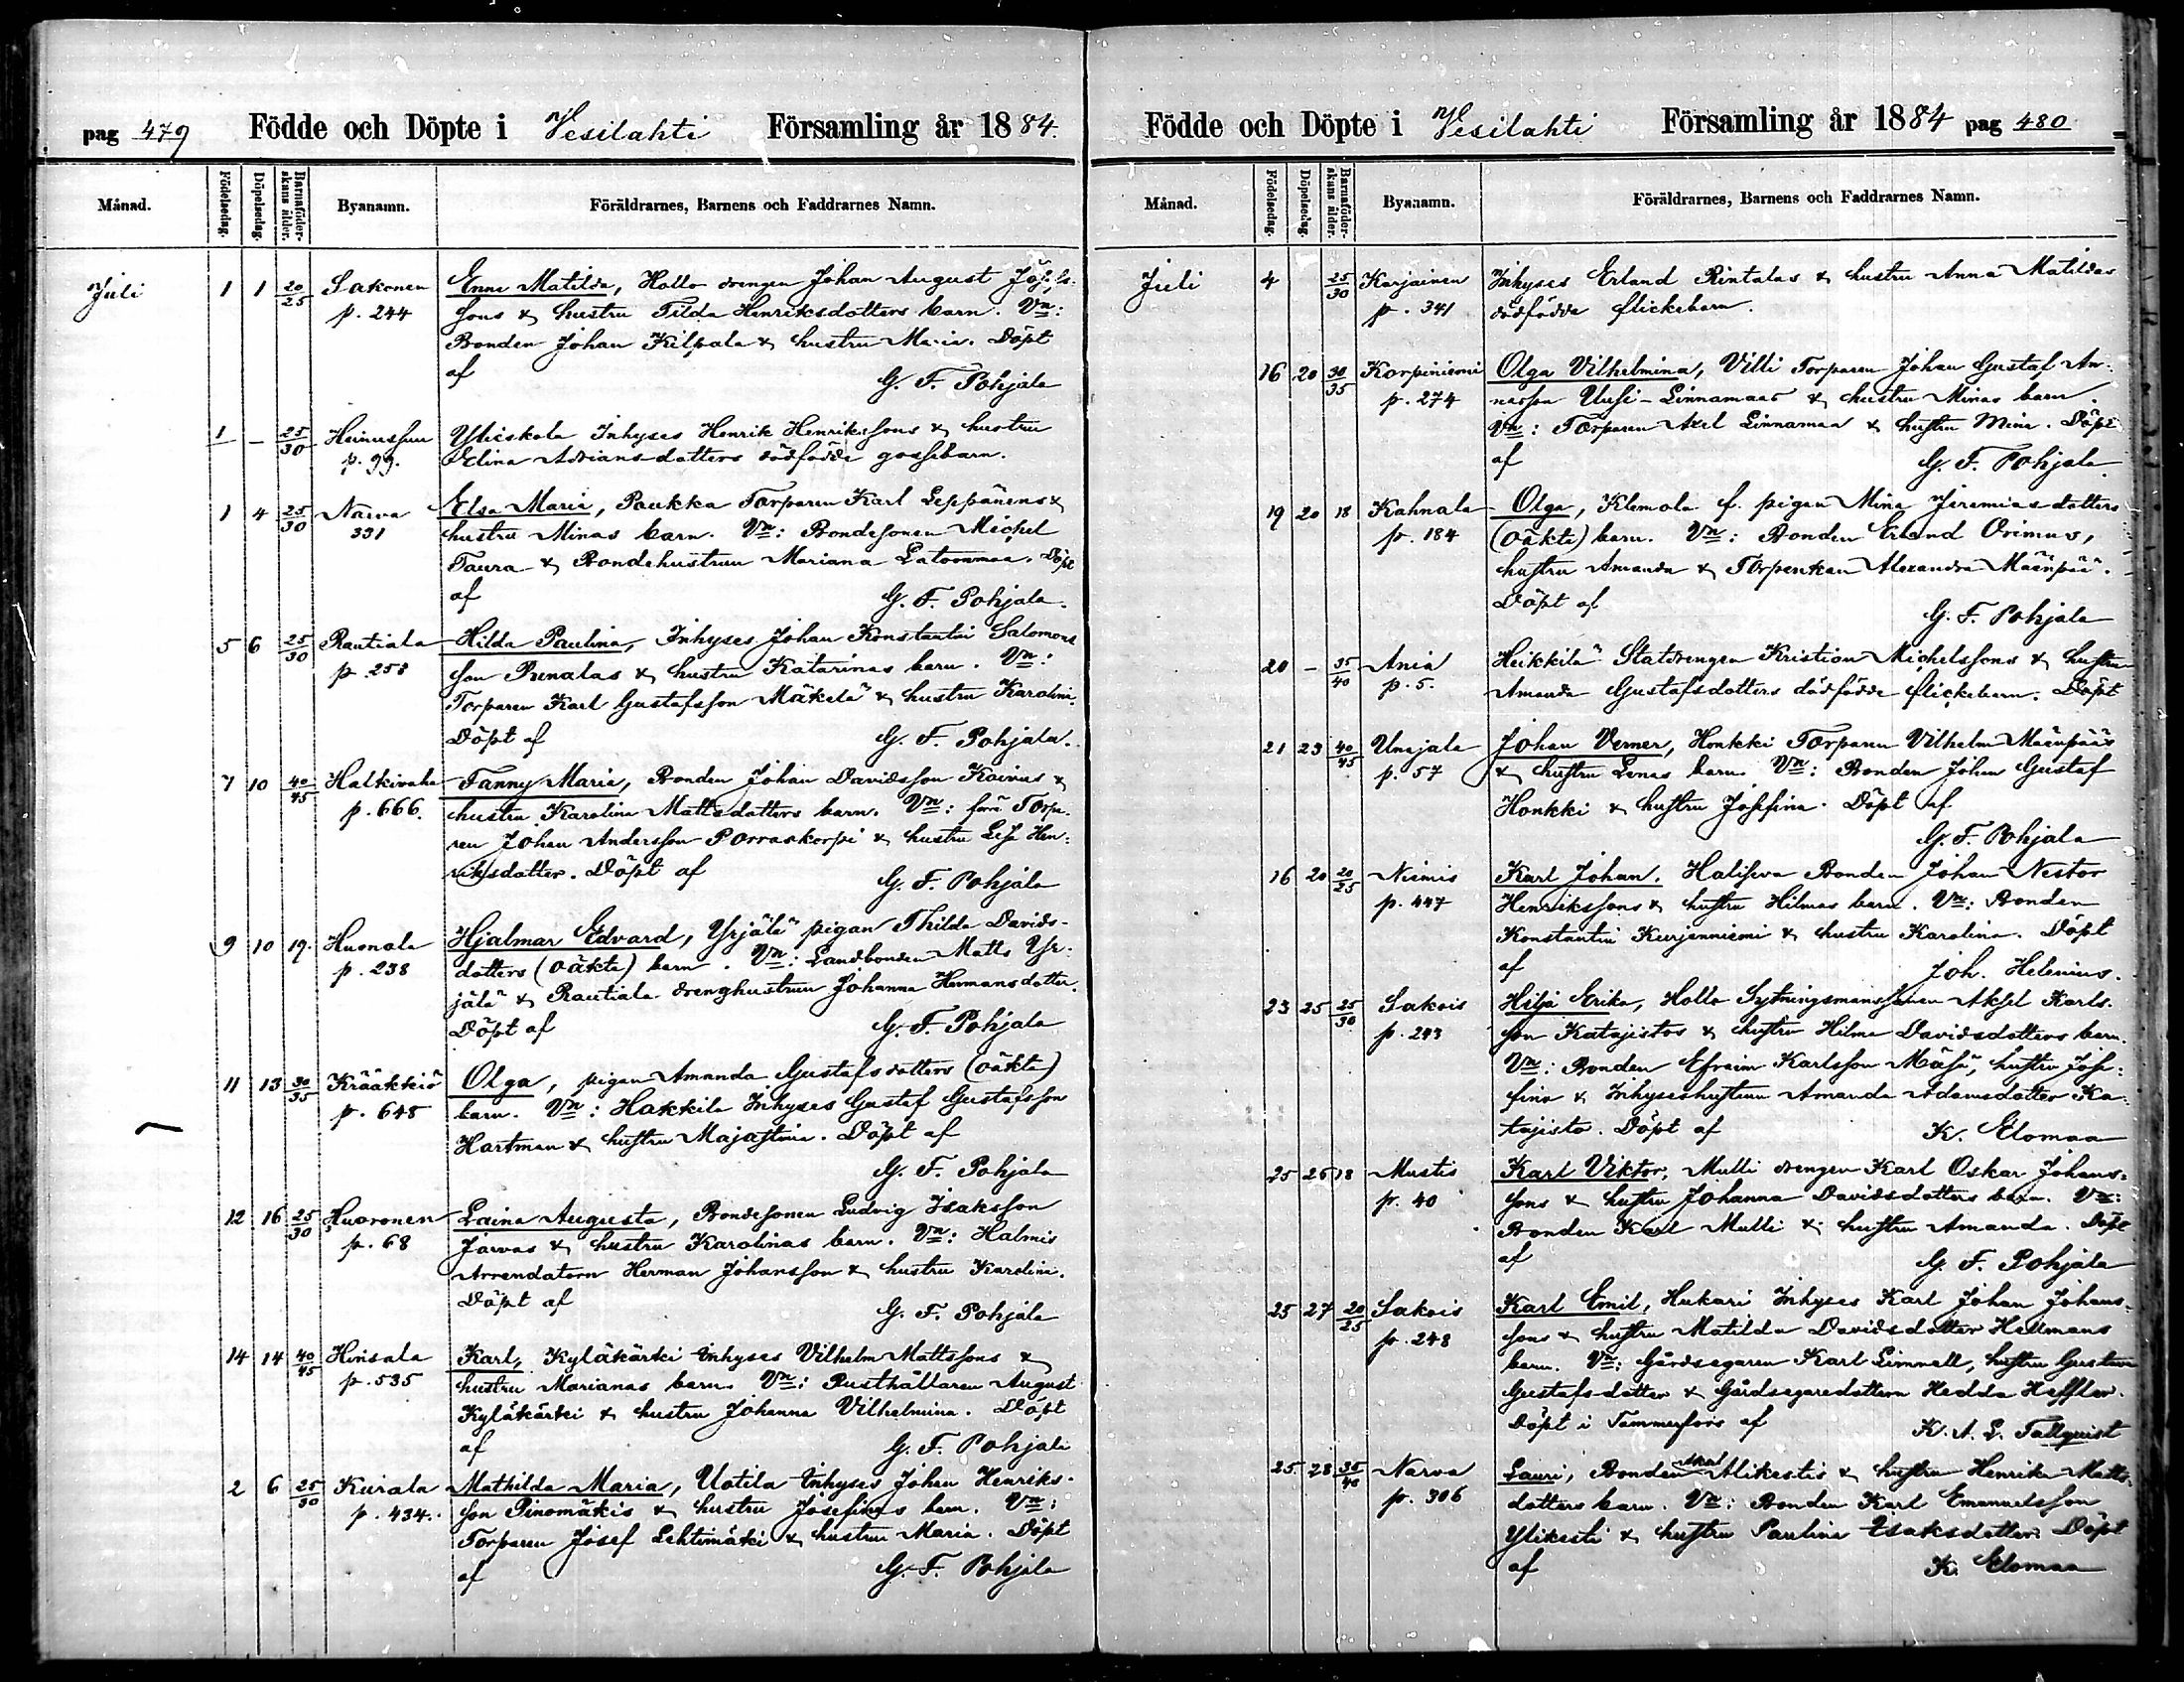 pag 479 Födde och Döpte i Vesilahti Församling år 1884.
Månad. Födelsedag. Döpelsedag. Barnaföderskans ålder. Byanamn. Föräldrarnes, Barnens och Faddrarnes Namn.
Juli 1 1 20/25 Sakonen Enni Matilda, Hollo drengen Johan August
p. 244 sons & hustru Tilda Henriksdotters barn. Vn:
Bonden Johan Kilpala & hustru Maria. Döpt
af G. F. Pohjala
1 – 25/30 Ylieskola Inhyses Henrik Henrikssons & hustru
p. 99. Elina Adriansdotters dödfödde gossebarn.
1 4 25/30 Narva Elsa Maria, Paukka Torparen Karl Leppänens &
331 hustru Minas barn. Vn: Bondesonen Michel
Taura & Bondehustrun Mariana Latoonmaa. Döpt
af G. F. Pohjala.
5 6 25/30 Rautiala Hilda Paulina, Inhyses Johan Konstantin Salomons
p. 258 son Runalas & hustru Katarinas barn. Vn:
Torparen Karl Gustafsson Mäkelä & hustru Karolina.
Döpt af G. F. Pohjala.
7 10 40/45 Halkivaha Fanny Maria, Bonden Johan Davidsson Koivus &
p. 666. hustru Karolina Mattsdotters barn. Vn: förra Torpa-
ren Johan Andersson Porraskorpi & hustru Lisa Hen-
riksdotter. Döpt af G. F. Pohjala
9 10 19. Huonala Hjalmar Edvard, Yrjälä pigan Thilda Davids-
p. 238 dotters (oäkta) barn. Vn: Landbonden Matts Yr-
jälä & Rautiala drenghustrun Johanna Hermansdotter.
Döpt af G. F. Pohjala
11 13 30/35 Krääkkiö Olga, pigan Amanda Gustafsdotters (oäkta)
p. 648 barn. Vn: Hakkila Inhyses Gustaf Gustafsson
Hartman & hustru Majastina. Döpt af
G. F. Pohjala
12 16 25/30 Huoronen Laina Augusta, Bondesonen Ludvig Isaksson
p. 68 Jarvas & hustru Karolinas barn. Vn: Halmis
Arrendatorn Herman Johansson & hustru Karolina.
Döpt af G. F. Pohjala
14 14 40/45 Hinsala Karl, Kyläkärki Inhyses Vilhelm Mattssons &
p. 535 hustru Marianas barn. Vn: Rusthållaren August
Kyläkärki & hustru Johanna Vilhelmina. Döpt
af G. F. Pohjala
2 6 25/30 Kurala Mathilda Maria, Uotila Inhyses Johan Henriks-
p. 434. son Pinomäkis & hustru Josefinas barn. Vn:
Torparen Josef Lehtimäki & hustru Maria. Döpt
af G. F. Pohjala
Födde och Döpte i Vesilahti Församling år 1884 pag 480
Månad. Födelsedag. Döpelsedag. Barnaföderskans ålder. Byanamn. Föräldrarnes, Barnens och Faddrarnes Namn.
Juli 4 25/30 Karjainen Inhyses Erland Rintalas & hustru Anna Matildas
p. 341 dödfödda flickebarn.
16 20 30/35 Korpiniemi Olga Vilhelmina, Villi Torparen Johan Gustaf An-
p. 274 nasson Uusi-Linnamaas & hustru Minas barn.
Vn: Torparen Axel Linnamaa & hustru Mina. Döpt
af G. F. Pohjala
19 20 18 Kahnala Olga, Klemola f. pigan Mina Jeremiasdotters
p. 184 (oäkta) barn. Vn: Bonden Erland Orimus,
hustru Amanda & Torpenkan Alexandra Mäenpää.
Döpt af G. F. Pohjala
20 – 35/40 Ania Heikkilä Statdrengen Kristian Michelssons & hustru
p. 5. Amanda Gustafsdotters dödfödde flickebarn. Döpt
21 23 40/45 Unajala Johan Verner, Honkki Torparen Vilhelm Mäenpääs
p. 57 & hustru Lenas barn. Vn: Bonden Johan Gustaf
Honkki & hustru Josefina. Döpt af
G. F. Pohjala
16 20 20/25 Niemis Karl Johan, Bonden Johan Nestor
p. 447 Henrikssons & hustru Hilmas barn. Vn: Bonden
Konstantin Kurjenniemi & hustru Karolina. Döpt
af Joh. Helenius.
23 25 25/30 Sakois Hilja Erika, Hollo Sytningsmanssonen Aksel Karls-
p. 243 son Katajistos & hustru Hilma Davidsdotters barn.
Vn: Bonden Efraim Karlsson Mäsä, hustru Jose-
fina & Inhyseshustrun Amanda Adamsdotter Ka-
tajisto. Döpt af K. Elomaa
25 26 18 Mustis Karl Viktor, Mulli drengen Karl Oskar Johans-
p. 40 sons & hustru Johanna Davidsdotters barn. Vn:
Bonden Karl Mulli & hustru Amanda. Döpt
af G. F. Pohjala
25 27 20/25 Sakois Karl Emil, Hukari Inhyses Karl Johan Johans-
p. 248 sons & hustru Matilda Davidsdotter Hellmans
barn. Vn: Gårdsegaren Karl Limnell, hustru Gustava
Gustafsdotter & Gårdsegaredottern Hedda Heffler.
Döpt i Tammerfors af K. A. L. Tallquist
25 28 35/40 Narva Lauri, Bonden Alikestis & hustru Henrika Matts-
p. 306 dotters barn. Vn: Bonden Karl Emanuelsson
Ylikesti & hustru Paulina Isaksdotter. Döpt
af K. Elomaa